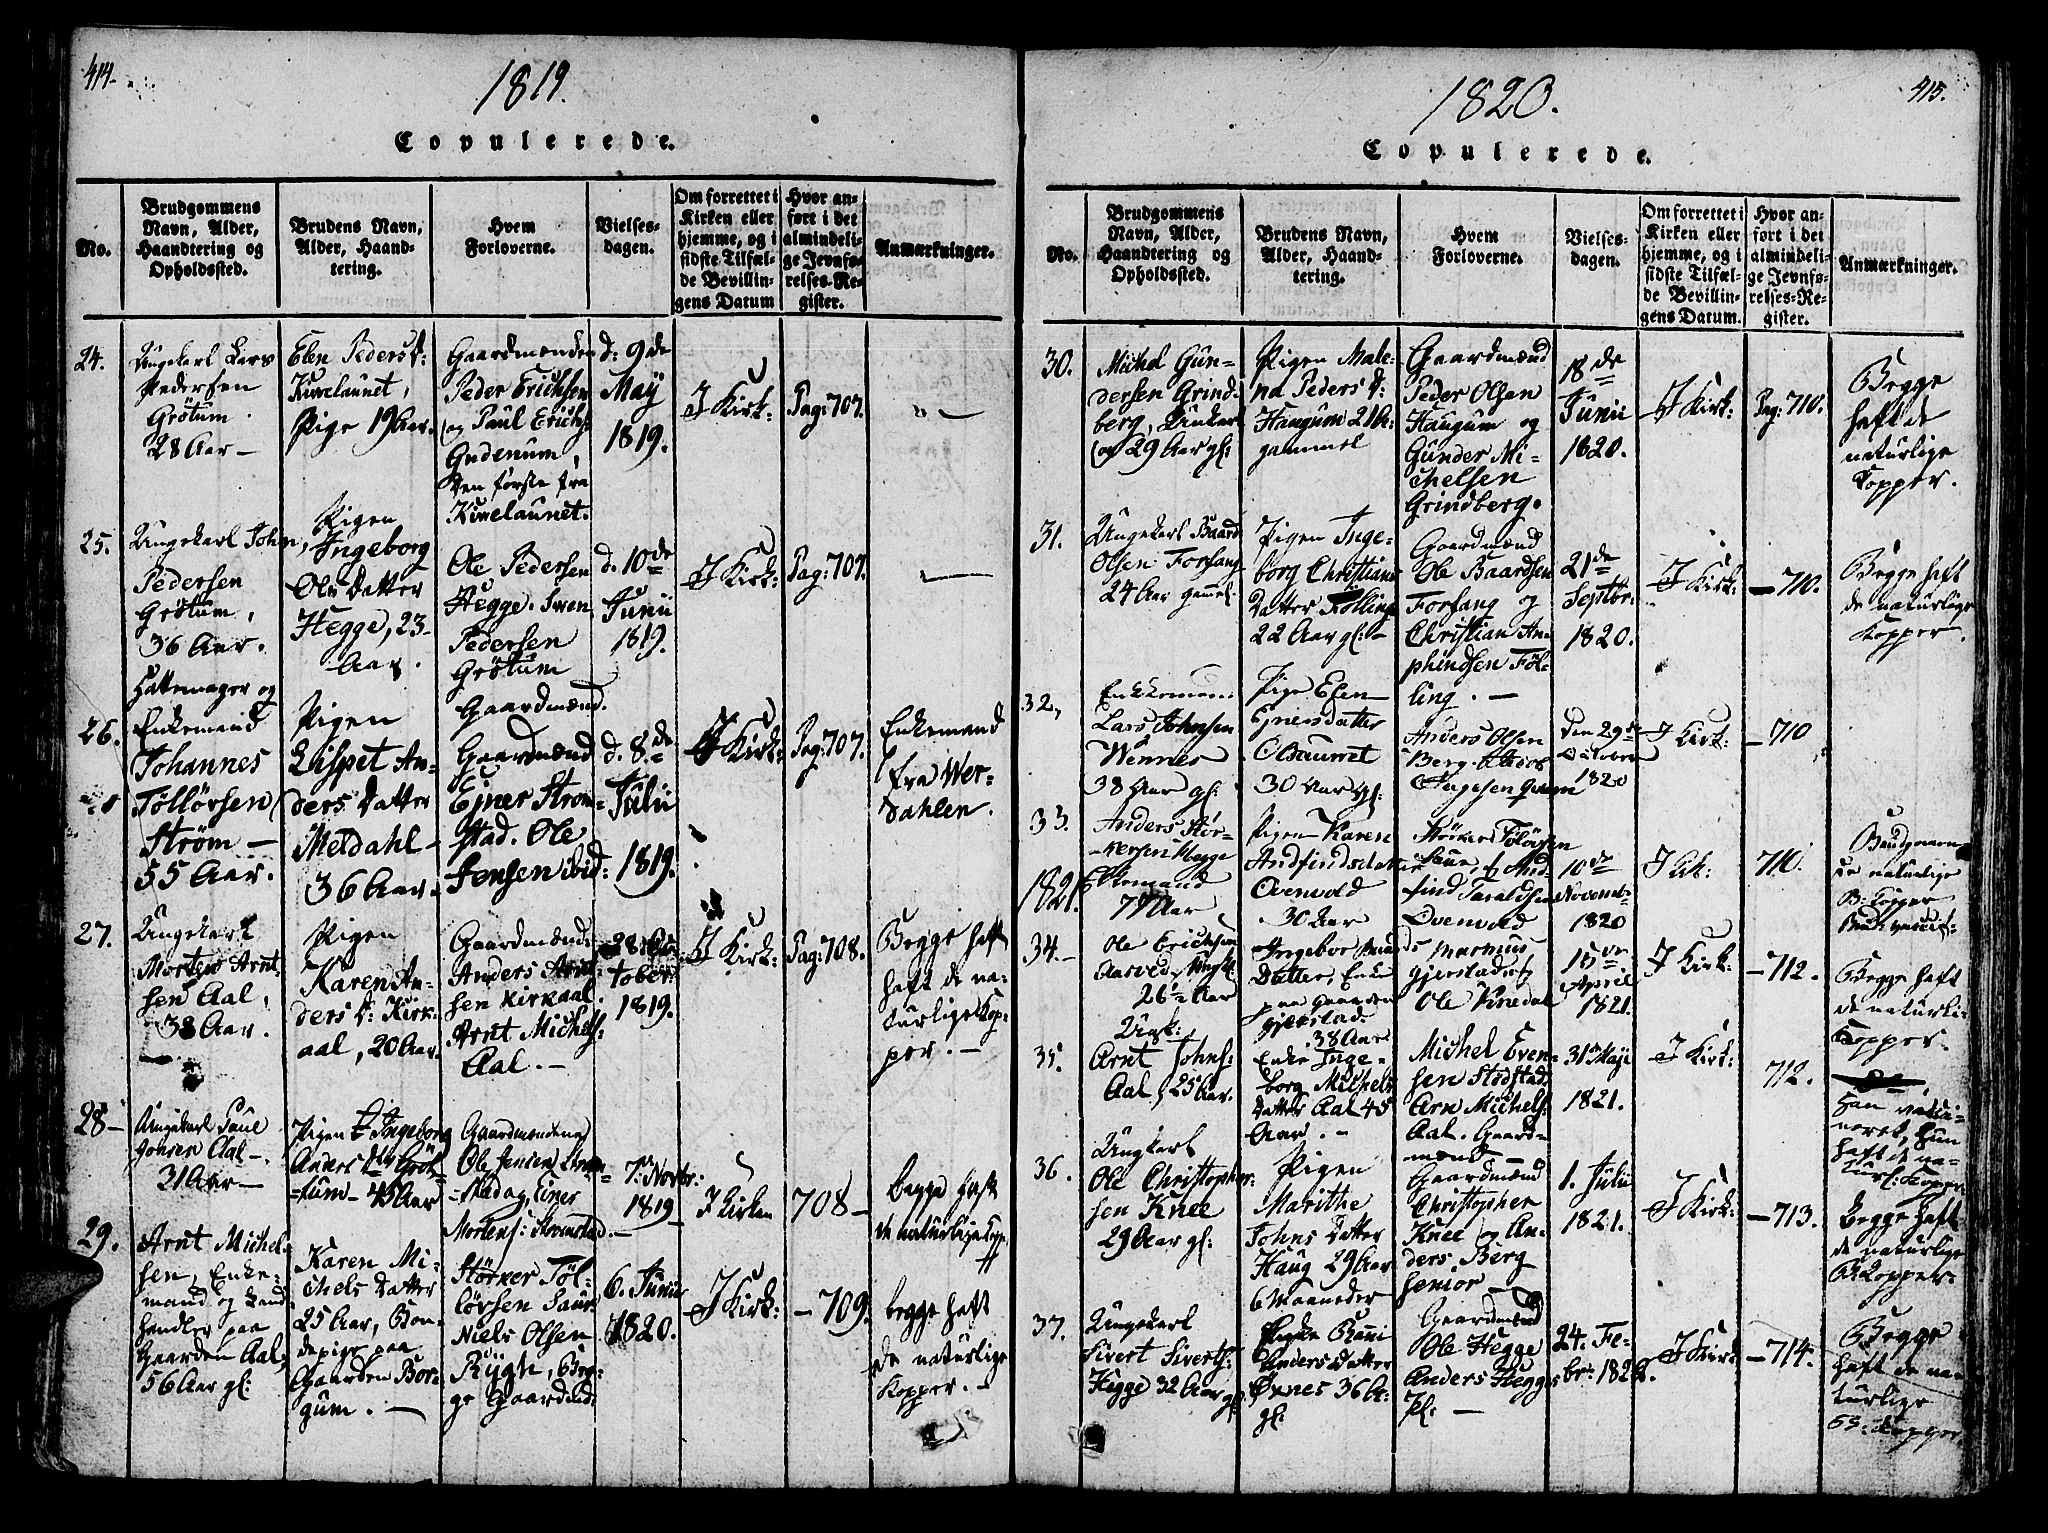 414.
1819.
Copulerede.
No.
Brudgommens
Navn, Alder,
Haandtering og
Opholdssted.
Brudens Navn,
Alder, Haand-
tering.
Hvem
Forloverne.
Vielses-
dagen.
Om forrettet i
Kirken eller
hjemme, og i
sidste Tilfæl-
de Bevillin-
gens Datum
Hvor an-
ført i det
almindeli-
ge Jevnfø-
relses-Re-
gister.
Anmærkninger.
24.
Ungekarl Lars
Pedersen
Grötum.
28 Aar —
Elen Peders D:
Kirrelaunet,
Pige 19 Aar.
Gaardmændene
Peder Erichsen
og Paul Erichs:
Gudenum,
den förste fra
Kirrelaunet.
d: 9de
Maÿ
1819.
I Kirk:
Pag: 707.
25.
Ungekarl John
Pedersen
Grötum,
36 Aar.
Pigen
Ingeborg
Ols Datter
Hegge, 23
Aar.
Ole Pedersen
Hegge. Swen
Pedersen
Grötum
Gaardmænd.
d. 10de
Junii
1819.
I Kirk:
Pag: 707.
—
26.
Hattemager og
Enkemand
Johannes
Töllörsen
Ström —
55 Aar.
Pigen
Lispet An-
ders Datter
Meldahl —
36 Aar.
Gaardmænd
Ejner Strom-
stad. Ole
Jensen ibid:
d. 8de
Julii
1819.
I Kirk:
Pag: 707.
Enkemand
fra Wer-
dahlen.
27.
Ungekarl
Morten Arnt-
sen Aal,
38 Aar.
—
Pigen
Karen An-
ders D: Kirk-
aal, 20 Aar.
Gaardmænd:
Anders Arnt-
sen Kirkaal.
Arnt Michels:
Aal. —
28 Oc-
tober
1819.
I Kirk:
Pag: 708.
Begge haft
haft de na-
turlige Kop-
per. —
28 —
Ungekarl Paul
Jonsen Aal —
31 Aar —
Pigen Ingeborg
Anders D: Gröt-
tum — 45 Aar
Gaardmændene
Ole Jensen Strøm-
stad og Einer
Mortens: Stromstad. —
7: Novbr:
1819 —
I Kirken
708 —
begge haft
de naturlige Kopp:
29.
Arnt Michel-
sen, Enke-
mand og Land-
handler paa
Gaarden Aal,
56 Aar gl:
Karen Mi-
chels Datter
25 Aar, Bon-
depige paa
Gaarden Bor-
gum. —
Störker Töl-
lörsen Saur
Niels Olsen
Rÿgh, Beg-
ge Gaardmd:
6. Junii
1820.
I Kirk:
— 709.
begge haft
de naturlige
Kopper. —
415.
1820.
Copulerede.
No.
Brudgommens
Navn, Alder,
Haandtering og
Opholdssted.
Brudens Navn,
Alder, Haand-
tering.
Hvem
Forloverne.
Vielses-
dagen.
Om forrettet i
Kirken eller
hjemme, og i
sidste Tilfæl-
de Bevillin-
gens Datum.
Hvor an-
ført i det
almindeli-
ge Jevnfø-
relses-Re-
gister.
Anmærkninger.
30.
Michel Gun-
dersen Grind-
berg, Enkem:
og 29 Aar gl:
Pigen Male-
na Peders D:
Haugum 21 A:
gammel
Gaardmænd
Peder Olsen
Haugum og
Gunder Mi-
chelsen
Grindberg.
18de
Junii
1820.
I Kirk:
Pag: 710.
Begge
haft de
naturlige
Kopper.
31.
Ungekarl Baard
Olsen Forfang
24 Aar gamel.
Pigen Inge-
borg Christians
Datter Fölling
22 Aar gl: —
Gaardmænd
Ole Baardsen
Forfang og
Christian An-
phindsen Föl-
ling. —
21de
Septbr:
1820.
I Kirk:
— 710.
Begge haft
de naturlige
Kopper.
32,
Enkeman
Lars Johnsen
Wennes
38 Aar gl:
Pige Elen
Ejnersdatter
Olsaunet
30 Aar gl:
Anders Olsen
Berg.
Ingesen
Den 29de
Octobr
1820
I Kirk:
— 710
33.
Anders Stör-
kersen Hegge
Enkemand
77 Aar
Pigen Karen
Andfindsdatter
Overvold
30 Aar
Störker Tölörsen
Saur, And-
find Taraldsen
Overvold
10de
Novemb:
1820
I Kirk:
710.
Brudgommen
de naturlige
B: Kopper
1821.
34.
Ole Erichsen
Aarsved, Ungk:
26 Aar
Ingebor Amunds
Datter, Enke
paa Gaarden
Gjerstad.
38 Aar
Marmus
Gjerstad
Ole Knedal
15de
April
1821.
I Kirk:
— 712.
Begge haft
de naturli-
Kopper.
35.
Ungk:
Arnt Johns:
Aal, 25 Aar.
Enke Inge-
borg Michels
Datter Aal 45
Aar. —
Michel Even-
sen Stodstad
Arn Michels:
Aal. Gaard-
mænd —
31 Maji
1821.
I Kirk:
712.
Han vacci-
neret, Hun
haft de na-
turl: Kopper
36.
Ungkarl
Ole Christopher-
sen Knee
29 Aar gl:
Pigen
Marithe
Johns Datter
Haug 29 Aar
6 Maaneder
Gaardmænd
Christopher
Knee og An-
ders Berg
senior —
1. Julii
1821.
I Kirk:
— 713.
Begge haft
de naturlige
B: Kopper.
37.
Ungekarl
Sivert Siverts:
Hegge 32 Aar
gl:
Enke Beret
Anders Datter
Øxnes 36 A:
gl:
Gaardmænd
Ole Hegge
Anders Hegge
24. Fe-
br: 1822.
I Kirk:
— 714.
Begge
haft de na-
turlige
B: Kopper.